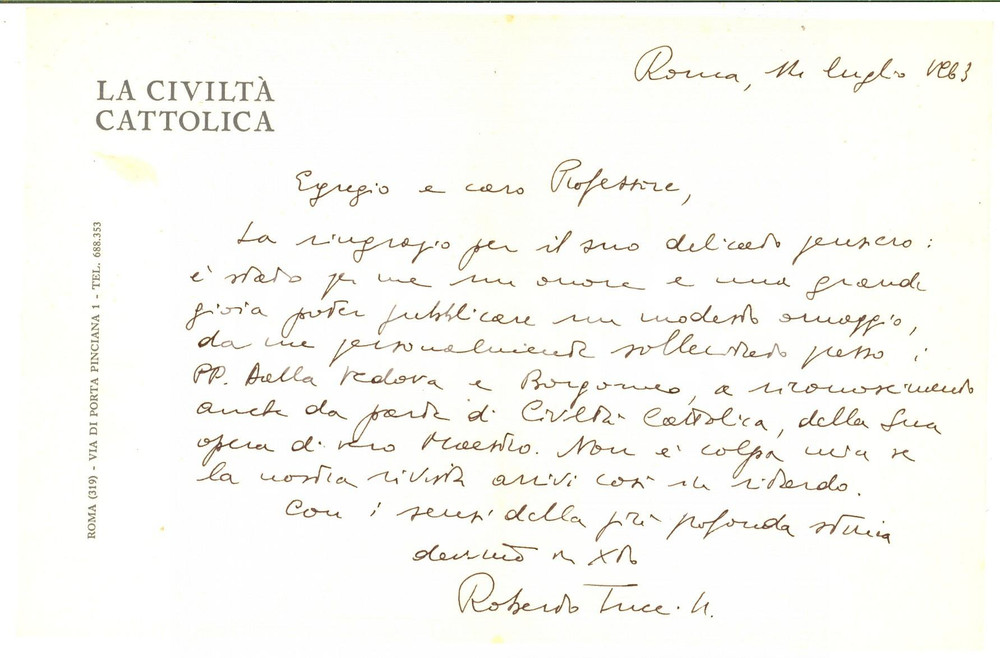 LA CIVILTÀ
CATTOLICA
ROMA (319) - VIA DI PORTA PINCIANA 1 - TEL. 688.353
Roma, luglio 1963
Egregio e caro Professore,
La ringrazio per il suo delicato pensiero:
è stato per me un onore e una grande
gioia poter pubblicare un modesto omaggio,
da me personalmente sollecitato presso i
PP. Dalla Vedova e Borgomeo, a riconoscimento
anche da parte di Civiltà Cattolica, della Sua
opera di vero Maestro. Non è colpa mia se
la nostra rivista arrivi così in ritardo.
Con i sensi della più profonda stima
dev.mo in Xto
Roberto Tucci